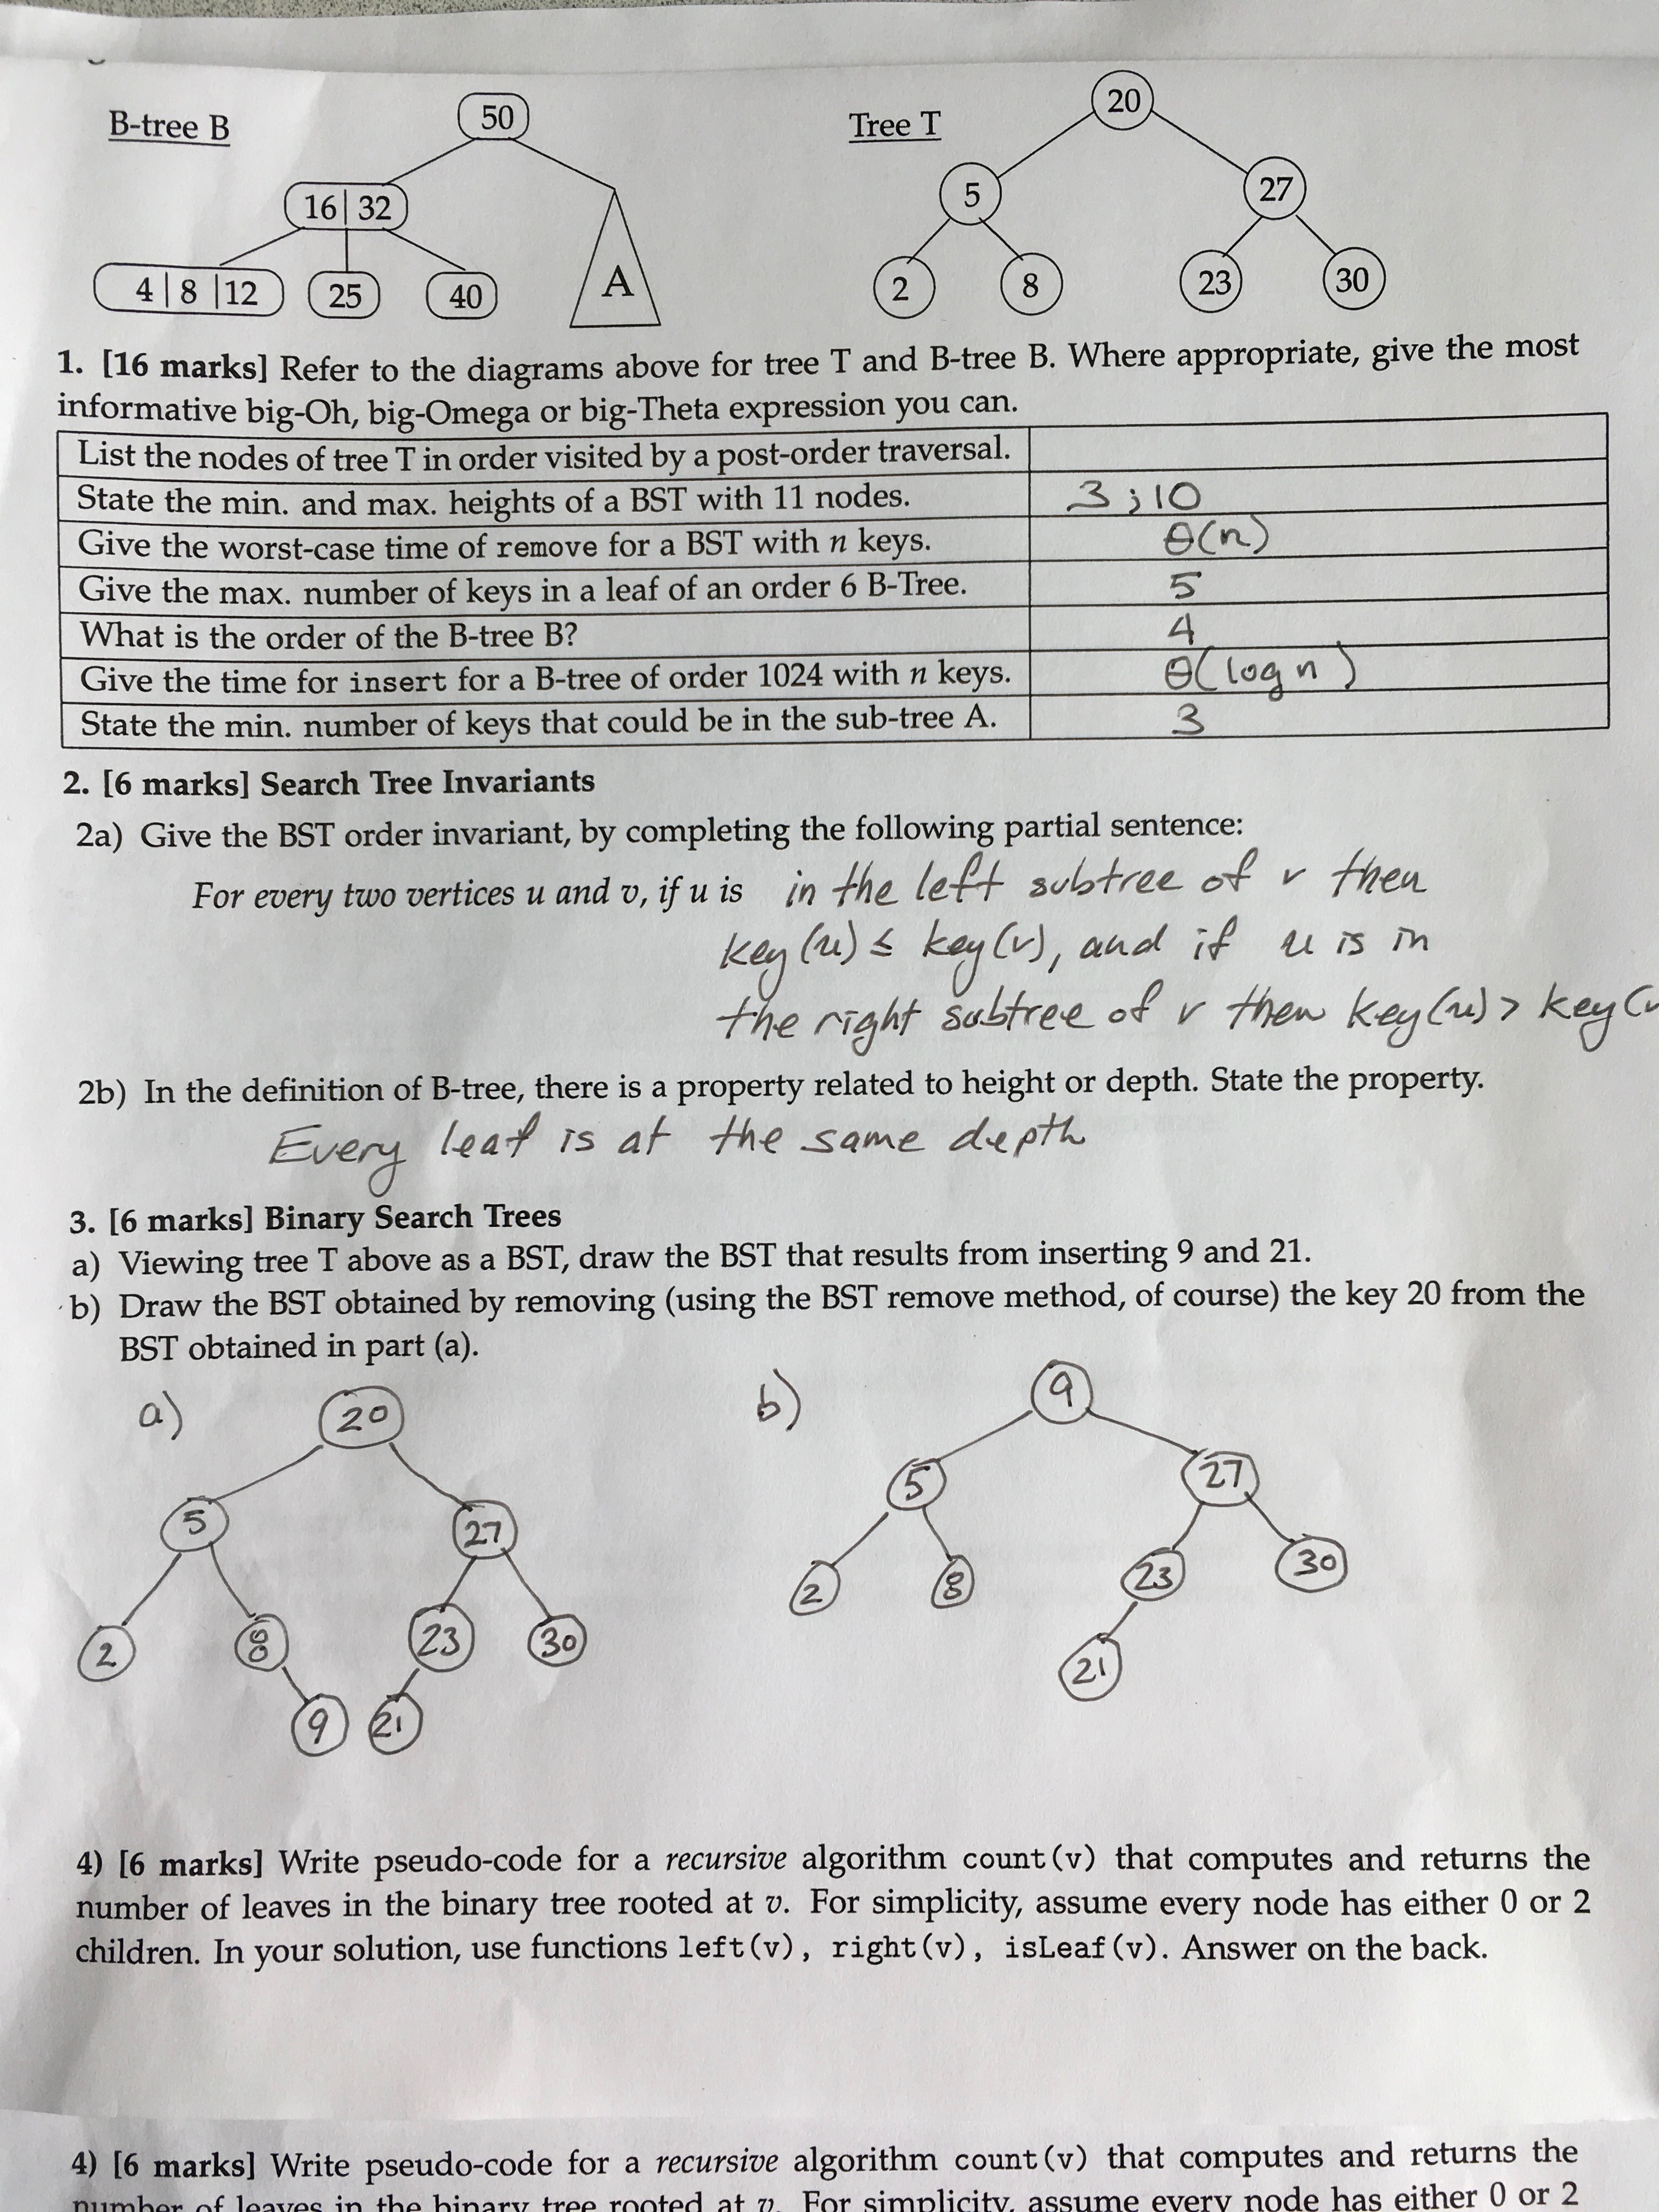 B-tree B
50
16 | 32
4 | 8 | 12
25
40
A
Tree T
20
5
27
2
8
23
30
1. [16 marks] Refer to the diagrams above for tree T and B-tree B. Where appropriate, give the most
informative big-Oh, big-Omega or big-Theta expression you can.
List the nodes of tree T in order visited by a post-order traversal.
State the min. and max. heights of a BST with 11 nodes. 3 ; 10
Give the worst-case time of remove for a BST with n keys. Θ(n)
Give the max. number of keys in a leaf of an order 6 B-Tree. 5
What is the order of the B-tree B? 4
Give the time for insert for a B-tree of order 1024 with n keys. Θ(log n)
State the min. number of keys that could be in the sub-tree A. 3
2. [6 marks] Search Tree Invariants
2a) Give the BST order invariant, by completing the following partial sentence:
For every two vertices u and v, if u is in the left subtree of v then
key(u) ≤ key(v), and if u is in
the right subtree of v then key(u) > key(v
2b) In the definition of B-tree, there is a property related to height or depth. State the property.
Every leaf is at the same depth
3. [6 marks] Binary Search Trees
a) Viewing tree T above as a BST, draw the BST that results from inserting 9 and 21.
b) Draw the BST obtained by removing (using the BST remove method, of course) the key 20 from the
BST obtained in part (a).
a)
20
5
27
2
8
23
30
9
21
b)
9
5
27
2
8
23
30
21
4) [6 marks] Write pseudo-code for a recursive algorithm count(v) that computes and returns the
number of leaves in the binary tree rooted at v. For simplicity, assume every node has either 0 or 2
children. In your solution, use functions left(v), right(v), isLeaf(v). Answer on the back.
4) [6 marks] Write pseudo-code for a recursive algorithm count(v) that computes and returns the
number of leaves in the binary tree rooted at v. For simplicity, assume every node has either 0 or 2